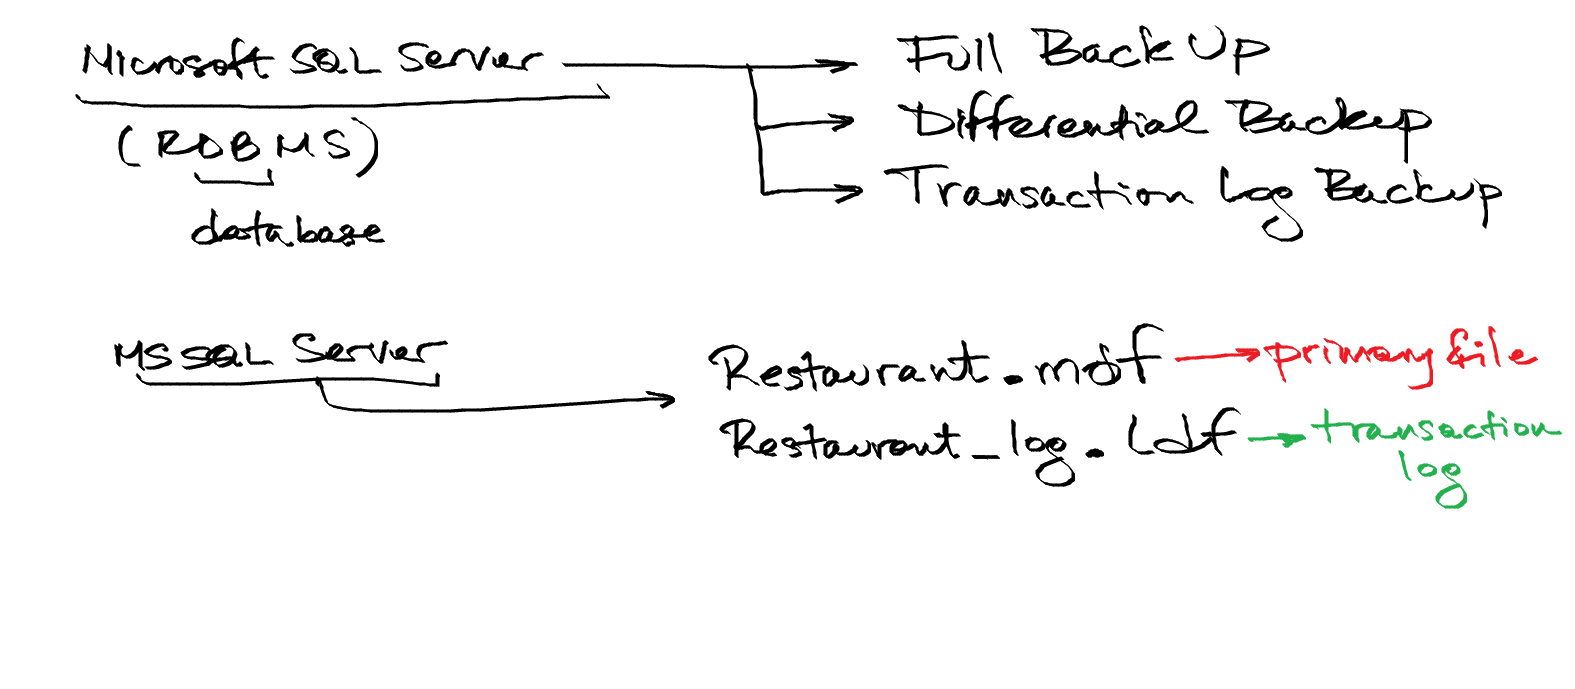 Microsoft SQL Server
(RDBMS)
database
Full BackUp
Differential Backup
Transaction Log Backup
MS SQL Server
Restaurant.mdf
primary file
Restaurant_log.ldf
transaction
log